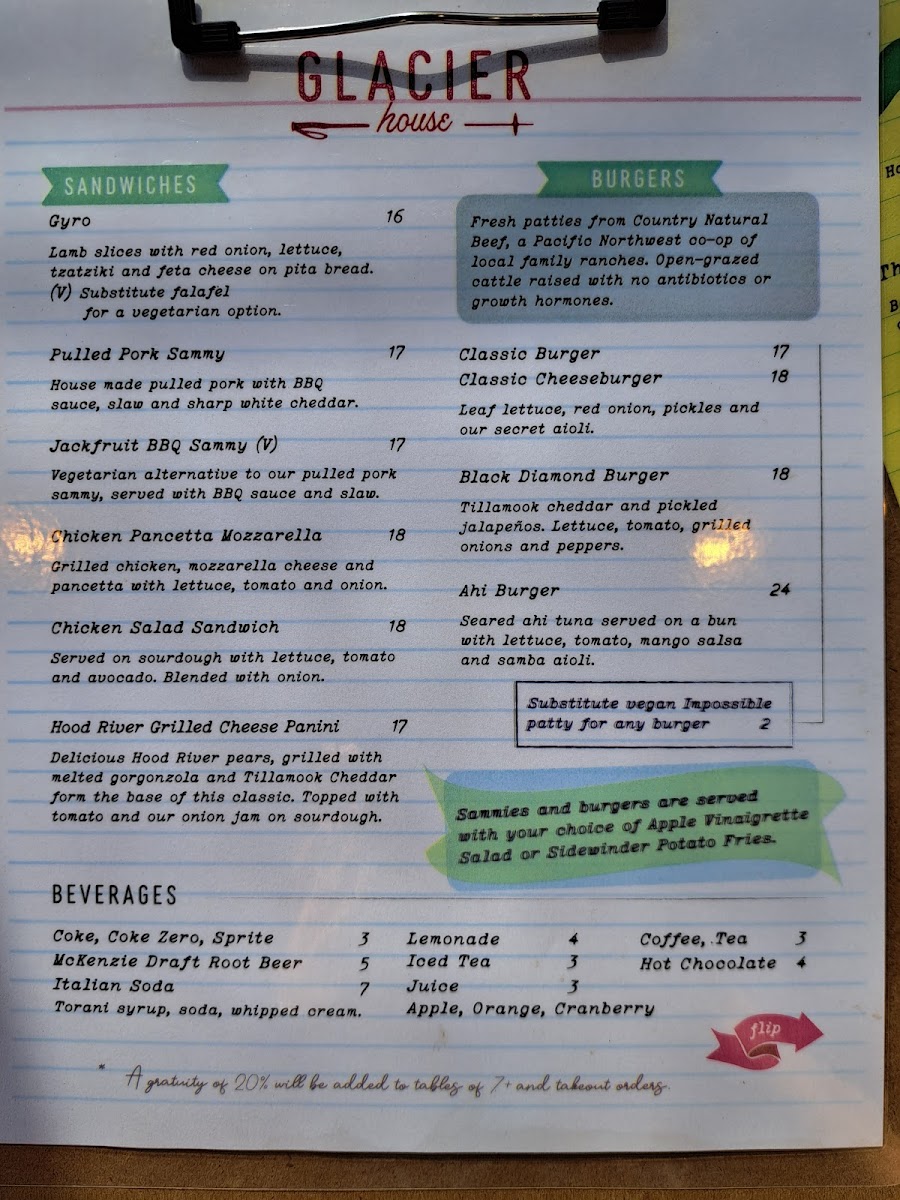 GLACIER
house
SANDWICHES
Gyro 16
Lamb slices with red onion, lettuce,
tzatziki and feta cheese on pita bread.
(V) Substitute falafel
for a vegetarian option.
Pulled Pork Sammy 17
House made pulled pork with BBQ
sauce, slaw and sharp white cheddar.
Jackfruit BBQ Sammy (V) 17
Vegetarian alternative to our pulled pork
sammy, served with BBQ sauce and slaw.
Chicken Pancetta Mozzarella 18
Grilled chicken, mozzarella cheese and
pancetta with lettuce, tomato and onion.
Chicken Salad Sandwich 18
Served on sourdough with lettuce, tomato
and avocado. Blended with onion.
Hood River Grilled Cheese Panini 17
Delicious Hood River pears, grilled with
melted gorgonzola and Tillamook Cheddar
form the base of this classic. Topped with
tomato and our onion jam on sourdough.
BURGERS
Fresh patties from Country Natural
Beef, a Pacific Northwest co-op of
local family ranches. Open-grazed
cattle raised with no antibiotics or
growth hormones.
Classic Burger 17
Classic Cheeseburger 18
Leaf lettuce, red onion, pickles and
our secret aioli.
Black Diamond Burger 18
Tillamook cheddar and pickled
jalapeños. Lettuce, tomato, grilled
onions and peppers.
Ahi Burger 24
Seared ahi tuna served on a bun
with lettuce, tomato, mango salsa
and samba aioli.
Substitute vegan Impossible
patty for any burger 2
Sammies and burgers are served
with your choice of Apple Vinaigrette
Salad or Sidewinder Potato Fries.
BEVERAGES
Coke, Coke Zero, Sprite 3
McKenzie Draft Root Beer 5
Italian Soda 7
Torani syrup, soda, whipped cream.
Lemonade 4
Iced Tea 3
Juice 3
Apple, Orange, Cranberry
Coffee, Tea 3
Hot Chocolate 4
flip
* A gratuity of 20% will be added to tables of 7+ and takeout orders.